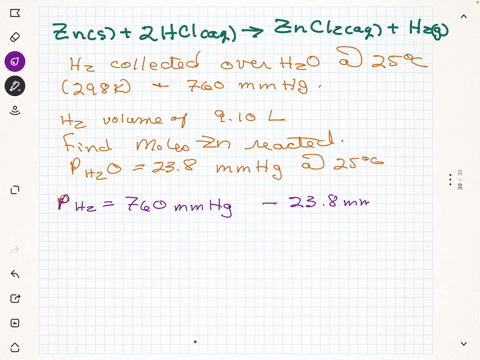 Zn(s) + 2HCl(aq) → ZnCl2(aq) + H2(g)
H2 collected over H2O @ 25°C
(298K) + 760 mmHg.
H2 volume of 9.10 L
Find moles Zn reacted.
PH2O = 23.8 mmHg @ 25°C
PH2 = 760 mmHg - 23.8 mm